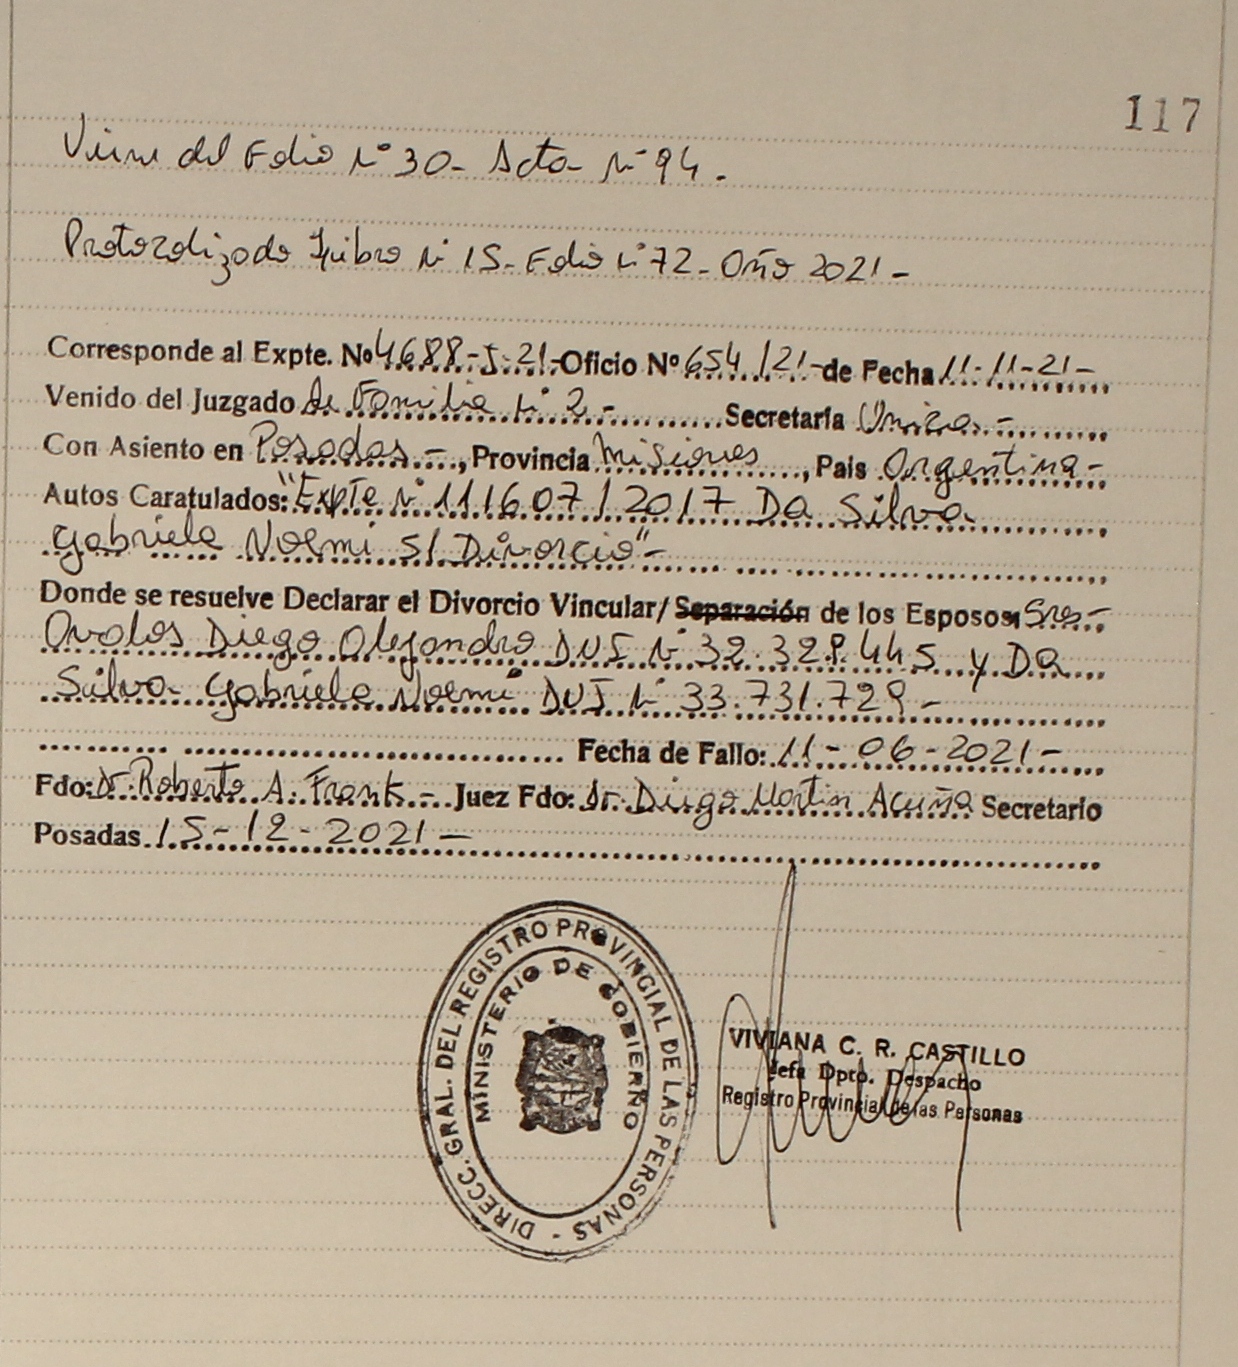 117
Viene del Folio N° 30- Acta N° 94.
Protocolizado Libro N° 15- Folio N° 72- Año 2021-
Corresponde al Expte. Nº 4688-J-21- Oficio Nº 654/21- de Fecha 11-11-21-
Venido del Juzgado de Familia N° 2- Secretaría Unica-
Con Asiento en Posadas-, Provincia Misiones, País Argentina-
Autos Caratulados: "Expte N° 111607/2017 Da Silva
Gabriela Noemi S/ Divorcio"-
Donde se resuelve Declarar el Divorcio Vincular/ Separación de los Esposos: Sres-
Avalos Diego Alejandro DNI N° 32.328.445 y Da
Silva Gabriela Noemi DNI N° 33.731.729-
Fecha de Fallo: 11-06-2021-
Fdo: Dr. Roberto A. Frank- Juez Fdo: Dr. Diego Martin Acuña Secretario
Posadas 15-12-2021-
DIRECC. GRAL. DEL REGISTRO PROVINCIAL DE LAS PERSONAS -
MINISTERIO DE GOBIERNO
VIVIANA C. R. CASTILLO
Jefa Dpto. Despacho
Registro Provincial de las Personas